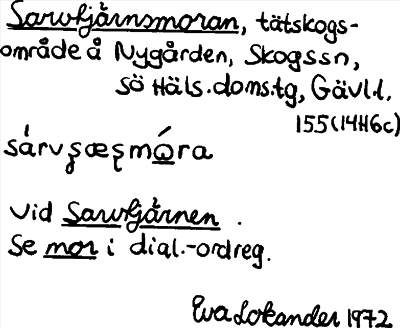 Sarvtjärnsmoran, tätskogs-
område å Nygården, Skogssn,
sö Häls.doms.tg, Gävl.l.
155(14H6c)
sárvʂæʂmóra
Vid Sarvtjärnen .
Se mor i dial.-ordreg.
Eva Lokander 1972